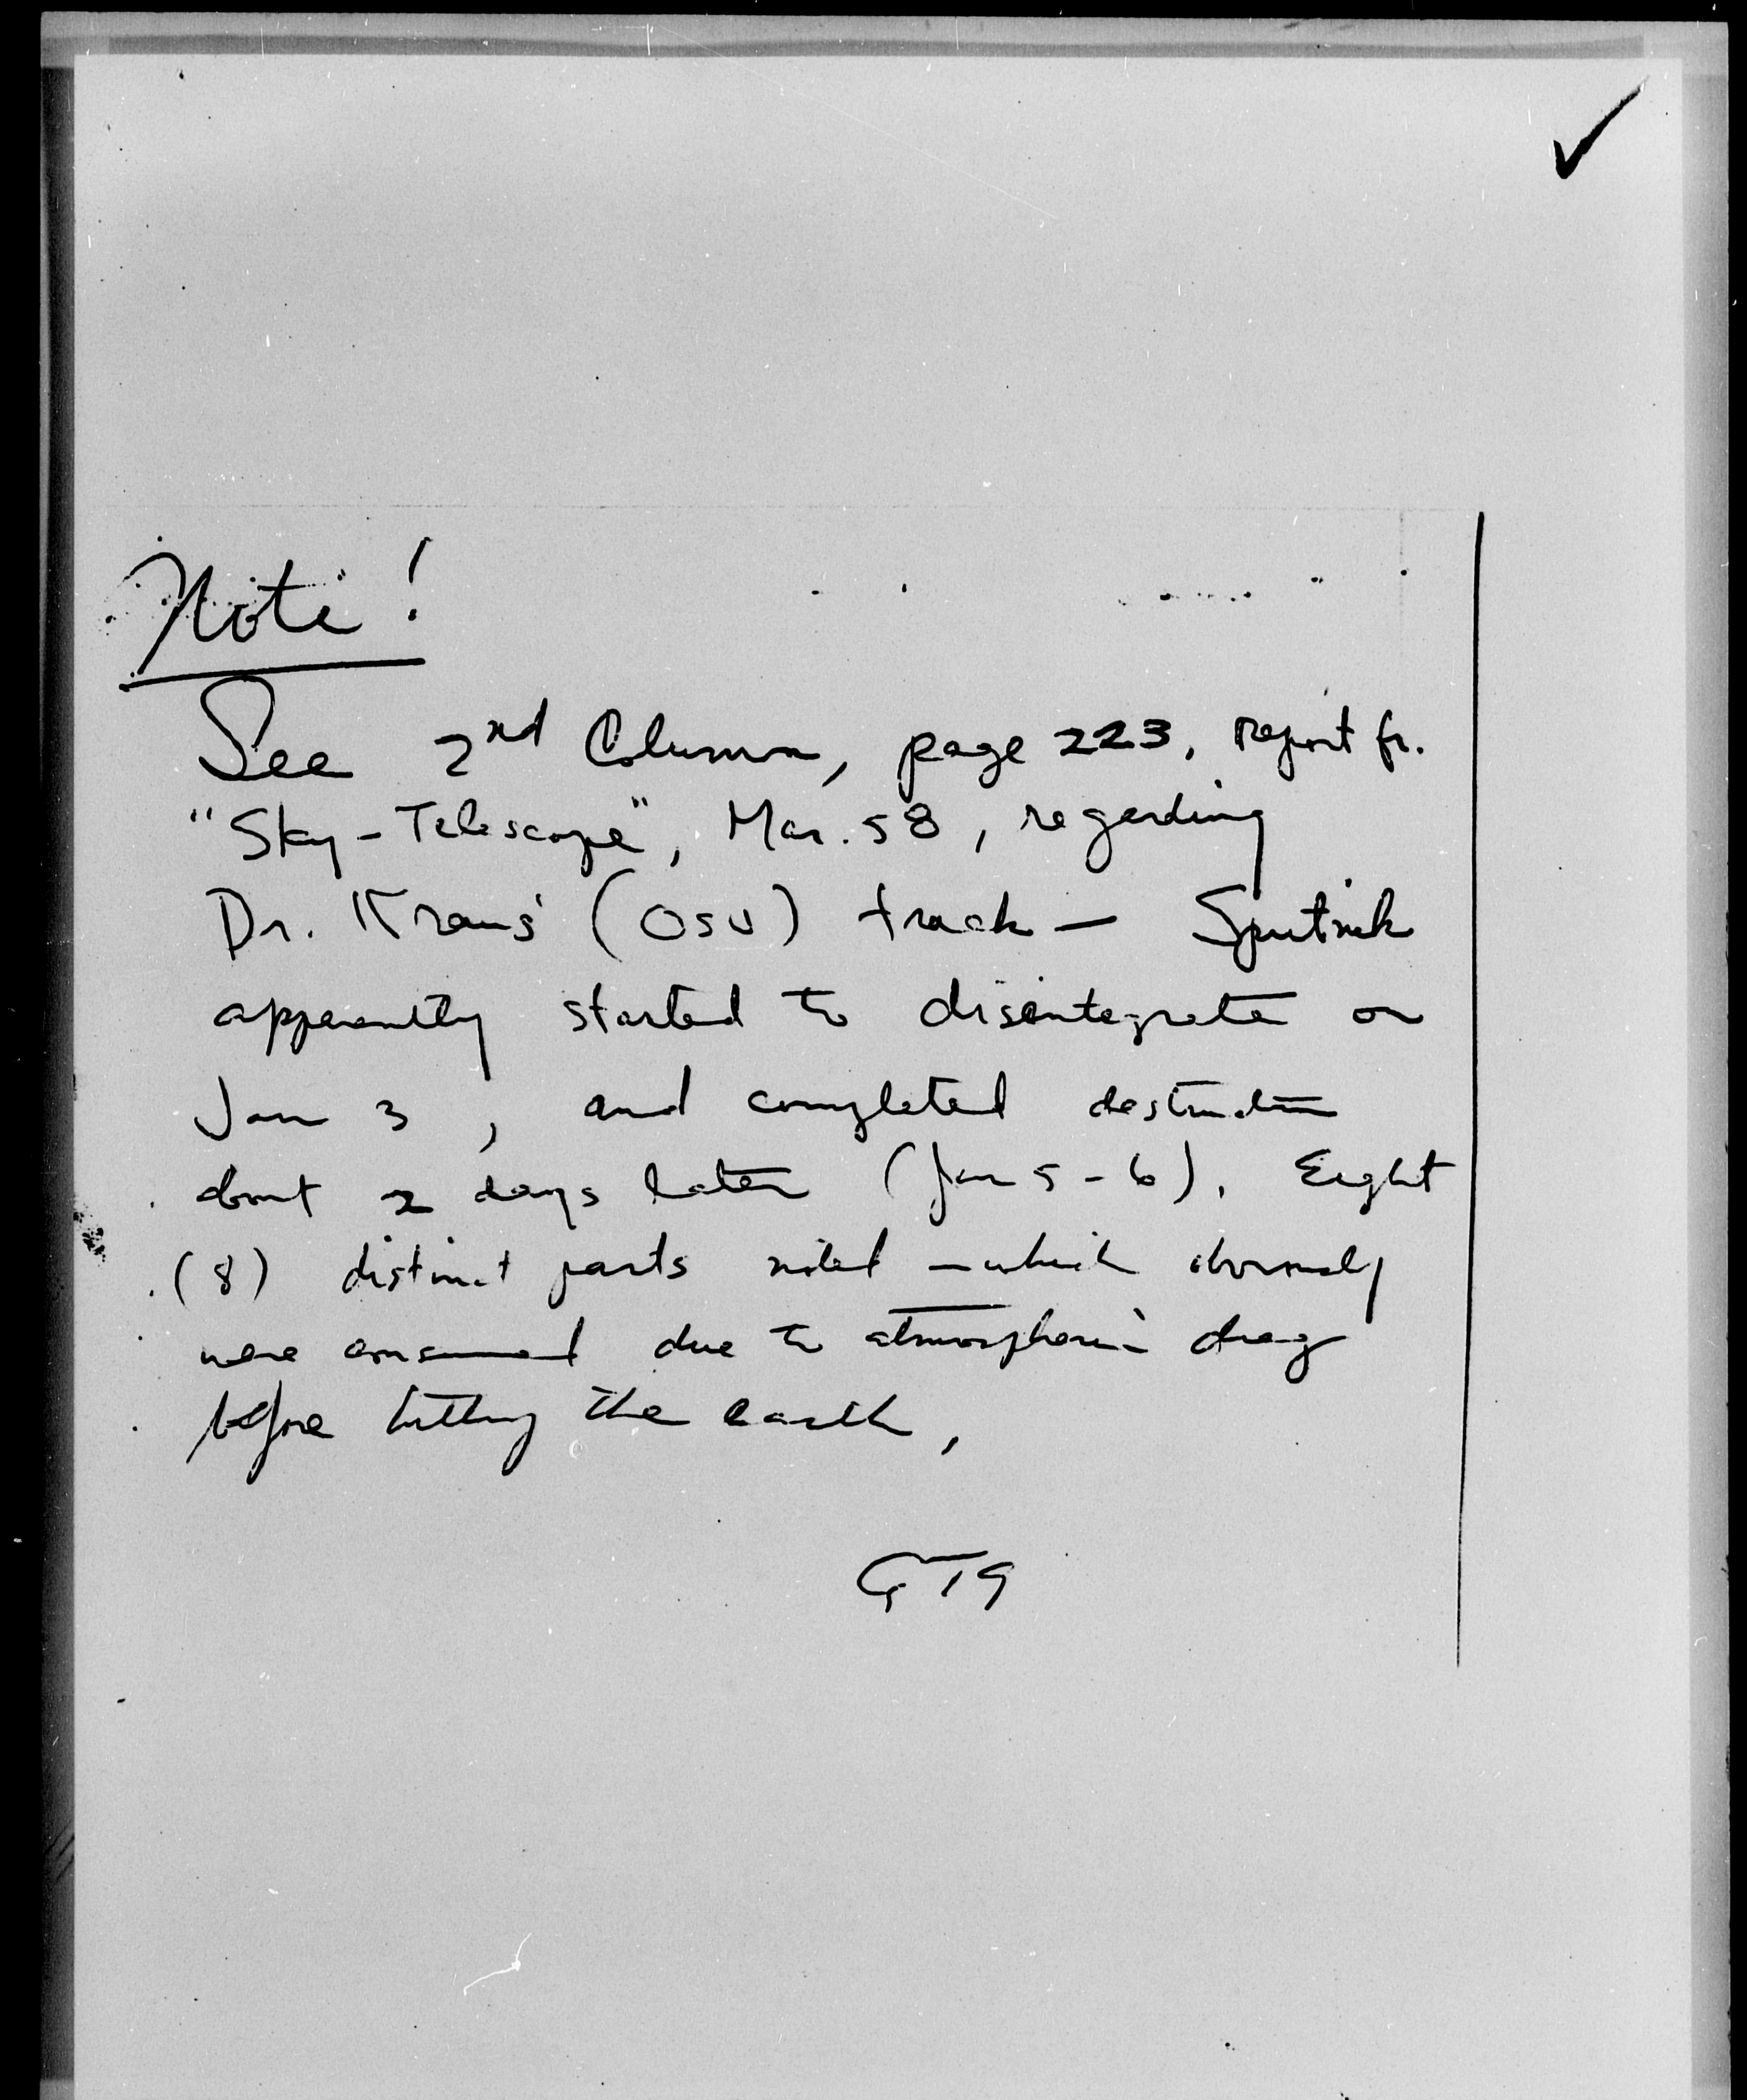 Note!
See 2nd Column, page 223, report fr.
"Sky-Telescope", Mar. 58, regarding
Dr. Kraus' (OSU) track — Sputnik
apparently started to disentegrate on
Jan 3, and completed destruction
about 2 days later (Jan 5-6). Eight
(8) distinct parts noted — which obviously
were consumed due to atmospheric drag
before hitting the earth,